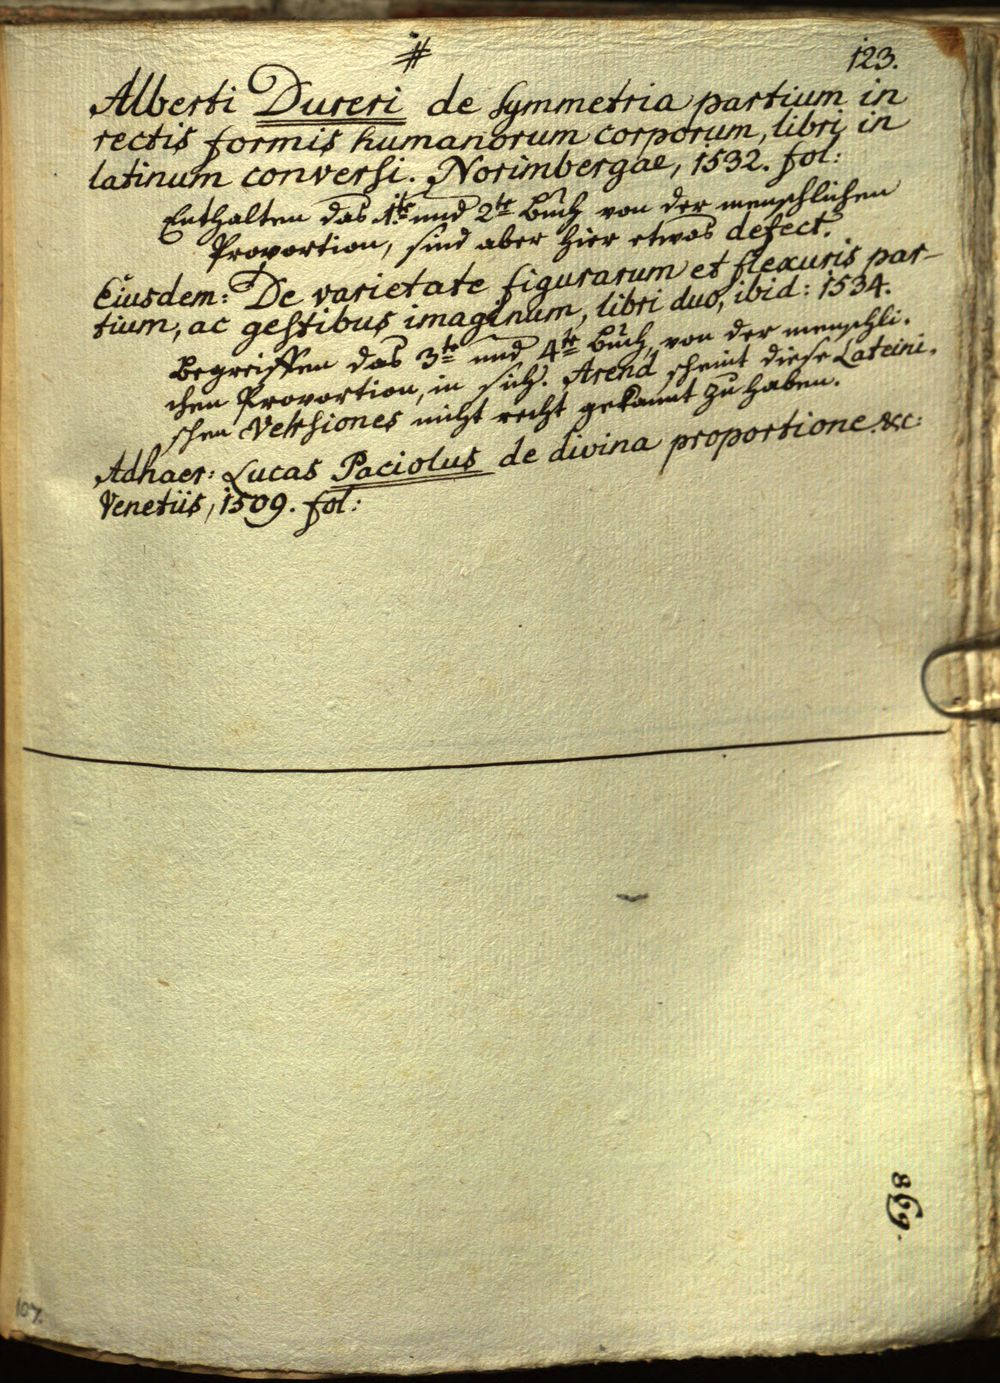 #
123.
Alberti Dureri de Symmetria partium in
rectis formis humanorum corporum, libri in
latinum conversi. Norimbergae, 1532. fol:
Enthalten das 1te und 2te Buch von der menschlichen
Proportion, sind aber hier etwas defect.
Eiusdem: De varietate figurarum et flexuris par-
tium, ac gestibus imaginum, libri duo, ibid: 1534.
Begreiffen das 3te und 4te Buch, von der menschli-
chen Proportion, in sich. Arend scheint diese Lateini-
schen Versiones nicht recht gekannt zu haben.
Adhaer: Lucas Paciolus de divina proportione &c:
Venetiis, 1509. fol:
869.
107.